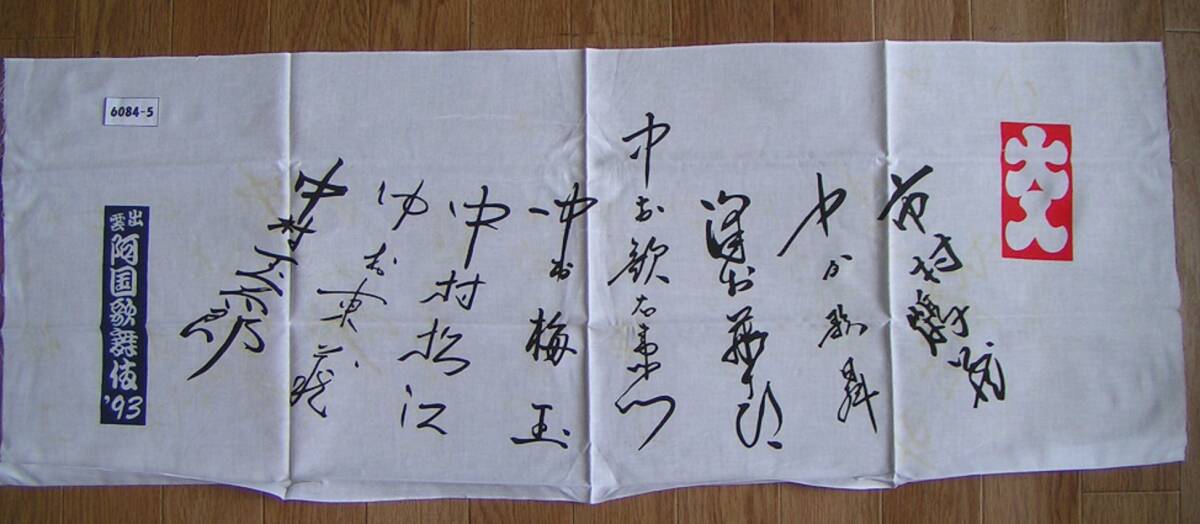 大入
市村
中村歌昇
澤村藤十郎
中村歌右衛門
中村梅玉
中村松江
中村東蔵
中村玉太郎
6084-5
出雲
阿国歌舞伎'93